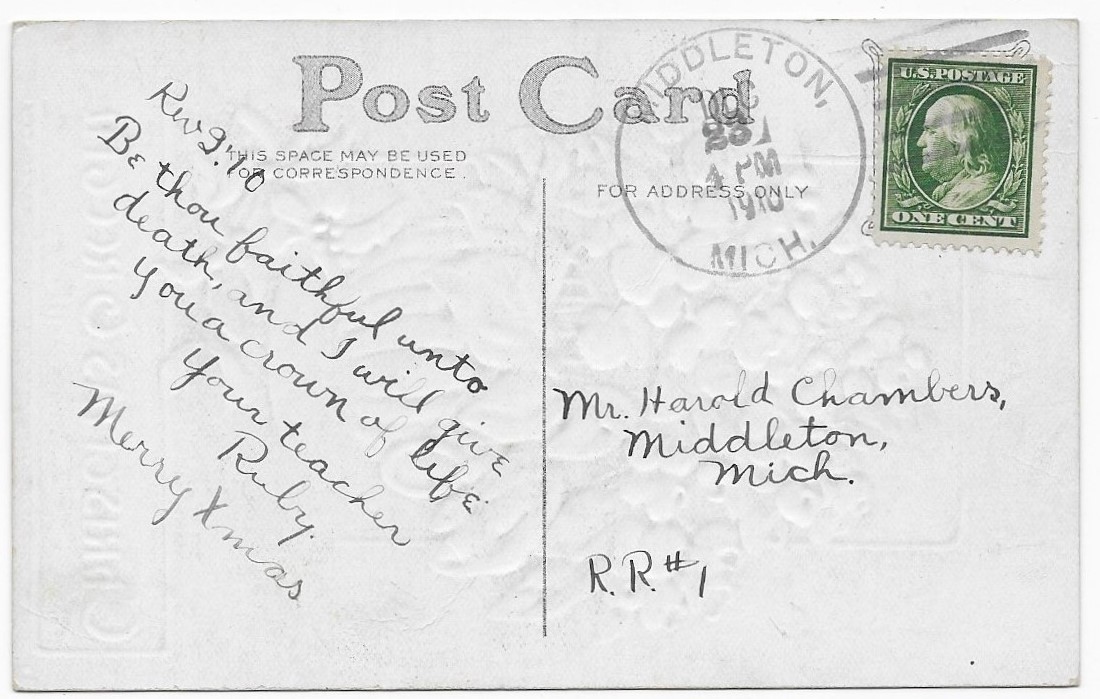 Post Card
THIS SPACE MAY BE USED
FOR CORRESPONDENCE.
FOR ADDRESS ONLY
MIDDLETON,
DEC
23
4 PM
1910
MICH.
U.S. POSTAGE
ONE CENT
Rev 2:10
Be thou faithful unto
death, and I will give
you a crown of life
Your teacher
Ruby.
Merry Xmas
Mr. Harold Chambers,
Middleton,
Mich.
R.R.#1